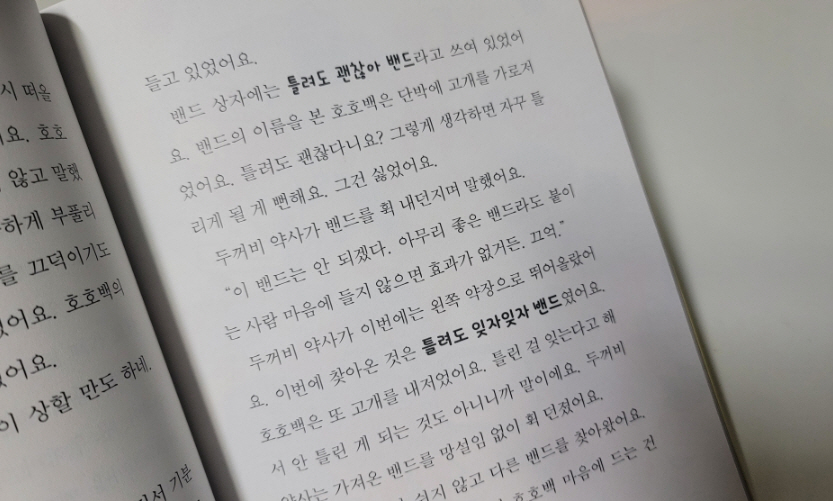 시 떠올
요. 호호
않고 말했
하게 부풀리
를 끄덕이기도
었어요. 호호백의
었어요.
이 상할 만도 하네.
기분
들고 있었어요.
밴드 상자에는 틀려도 괜찮아 밴드라고 쓰여 있었어
요. 밴드의 이름을 본 호호백은 단박에 고개를 가로저
었어요. 틀려도 괜찮다니요? 그렇게 생각하면 자꾸 틀
리게 될 게 뻔해요. 그건 싫었어요.
두꺼비 약사가 밴드를 휙 내던지며 말했어요.
“이 밴드는 안 되겠다. 아무리 좋은 밴드라도 붙이
는 사람 마음에 들지 않으면 효과가 없거든. 끄억.”
두꺼비 약사가 이번에는 왼쪽 약장으로 뛰어올랐어
요. 이번에 찾아온 것은 틀려도 잊자잊자 밴드였어요.
호호백은 또 고개를 내저었어요. 틀린 걸 잊는다고 해
서 안 틀린 게 되는 것도 아니니까 말이에요. 두꺼비
약사는 가져온 밴드를 망설임 없이 휙 던졌어요.
쉬지 않고 다른 밴드를 찾아왔어요.
호호백 마음에 드는 건